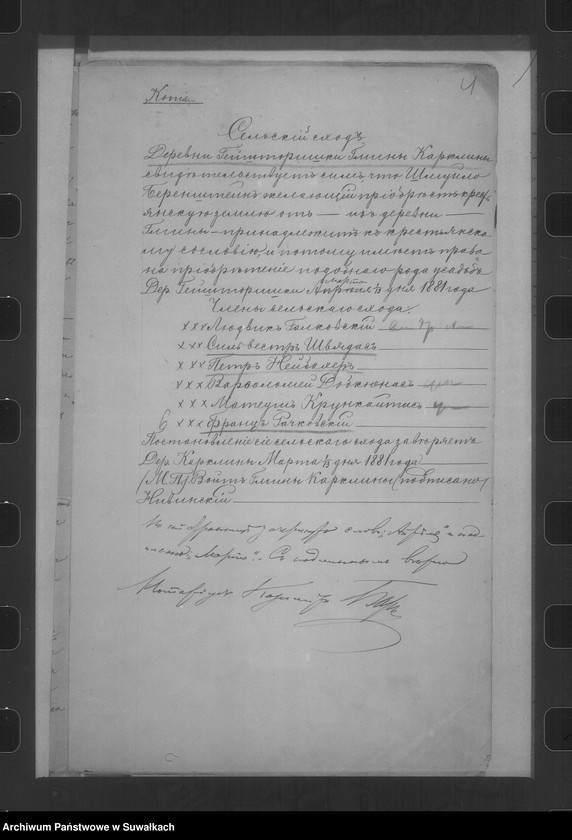 4
Копія
Сельскій сходъ
Деревни Гейшторишки Гмины Карклины
свидѣтельствуетъ симъ, что Шмуйло
Беренштейнъ желающій пріобрѣсть крес-
янскую землю отъ — изъ деревни —
Гмины — принадлежитъ къ крестьянско-
му сословію, и потому имѣетъ права
на пріобрѣтеніе подобнаго рода усадьбъ
марта
Дер. Гейшторишки Апрѣля дня 1881 года
Члены сельскаго схода:
х х х Людвикъ Галковскій
х х х Сильвестръ Швядасъ
х х х Петръ Нейберъ
х х х Варѳоломей
х х х Матеушъ Крункайтисъ
6 х х х Францъ Рачковскій
Постановленіе сіе сельскаго схода завѣряетъ
Дер. Карклины Марта дня 1881 года
(М.П.) Войтъ Гмины Карклины (подписано)
Нивинскій
зачеркнуто слово „Апрѣля" а над-
писано „Марта". Съ подлиннымъ вѣрно
Нотаріусъ
Archiwum Państwowe w Suwałkach